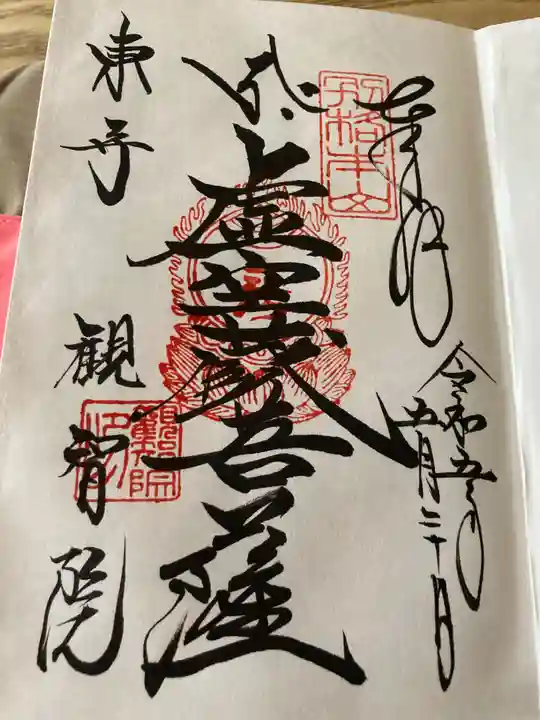 奉拝
令和五年
五月二十日
虚空蔵菩薩
東寺
観智院
観智院印